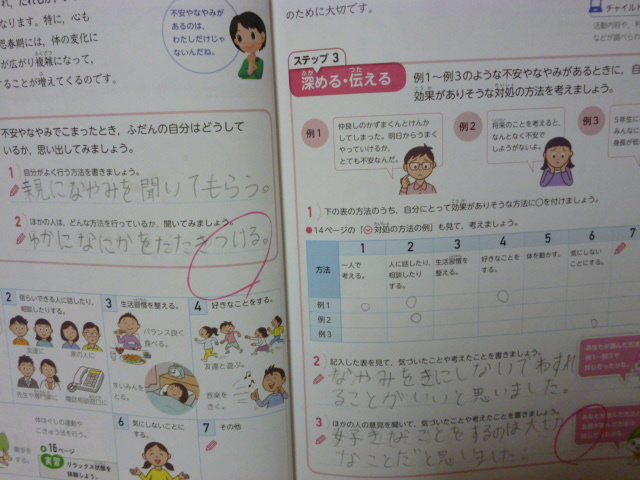 なります。特に、心も
思春期には、体の変化に
が広がり複雑になって、
することが増えてくるのです。
不安やなやみが
あるのは、
わたしだけじゃ
ないんだね。
不安やなやみでこまったとき、ふだんの自分はどうして
いるか、思い出してみましょう。
1 自分がよく行う方法を書きましょう。
親になやみを聞いてもらう。
2 ほかの人は、どんな方法を行っているか、聞いてみましょう。
ゆかになにかをたたきつける。
2 信らいできる人に話したり、
相談したりする。
友達に
家の人に
先生や専門家に
電話相談窓口に
3 生活習慣を整える。
バランス良く
食べる。
すいみんを
とる。
4 好きなことをする。
友達と遊ぶ。
音楽を
きく。
体ほぐしの運動や
こきゅう法を行う。
16ページ
実習
リラックス状態を
体験しよう。
6 気にしないことに
する。
7 その他
のために大切です。
チャイル
ステップ3
深める・伝える
例1~例3のような不安やなやみがあるときに、自
効果がありそうな対処の方法を考えましょう。
例1
仲良しのかずまくんとけんか
してしまった。明日からうまく
やっていけるか、
とても不安なんだ。
例2
将来のことを考えると、
なんとなく不安で
しようがないよ。
例3
5年生に
みんなに
身長が低
1 下の表の方法のうち、自分にとって効果がありそうな方法に○を付けましょう。
●14ページの「対処の方法の例」も見て、考えましょう。
方法
1
一人で
考える。
2
人に話したり、
相談したり
する。
3
生活習慣を
整える。
4
好きなことを
する。
5
体を動かす。
6
気にしない
ことにする。
7
例1
例2
例3
2 記入した表を見て、気づいたことや考えたことを書きましょう。
なやみをきにしないてわすれ
ることがいいと思いました。
3 ほかの人の意見を聞いて、気づいたことや考えたことを書きましょう。
好きなことをするのは大せつ
なことだと思いました。
あなたが選んだ方法